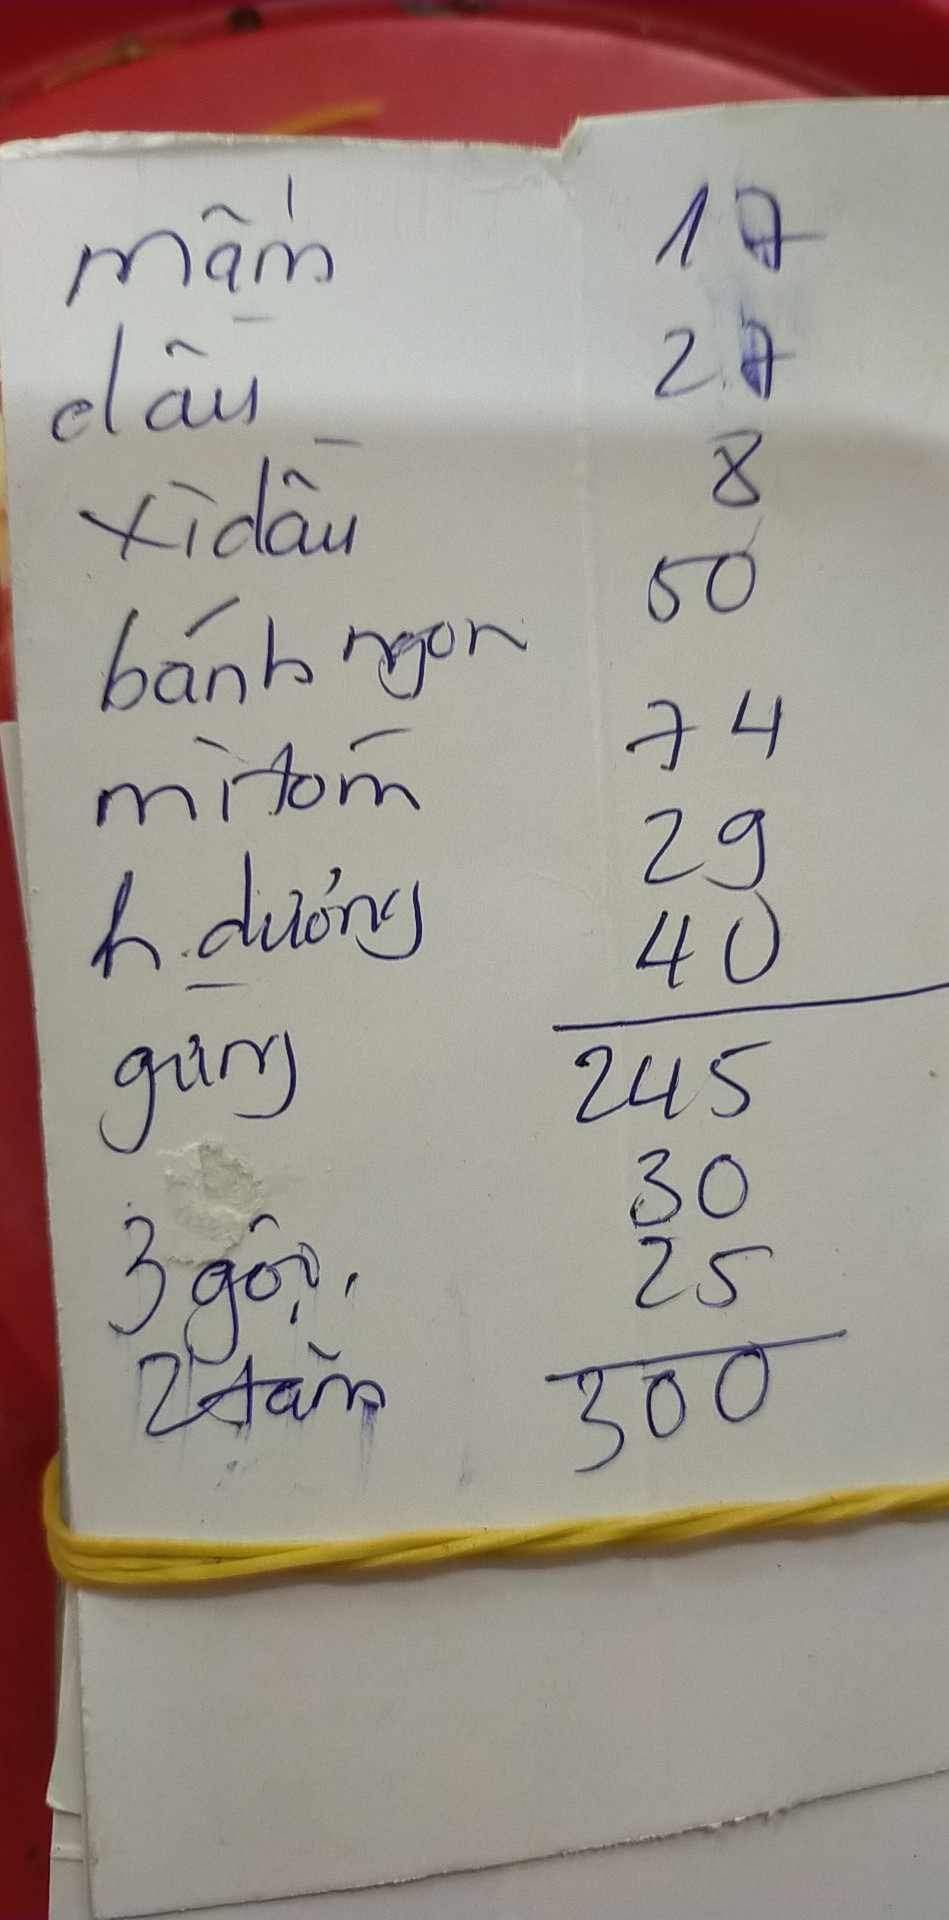 mắm 17
dầu 27
xì dầu 8
bánh ngon 50
mì tôm 74
h. dương 29
gừng 40
245
3 gội. 30
2 tàn 25
300